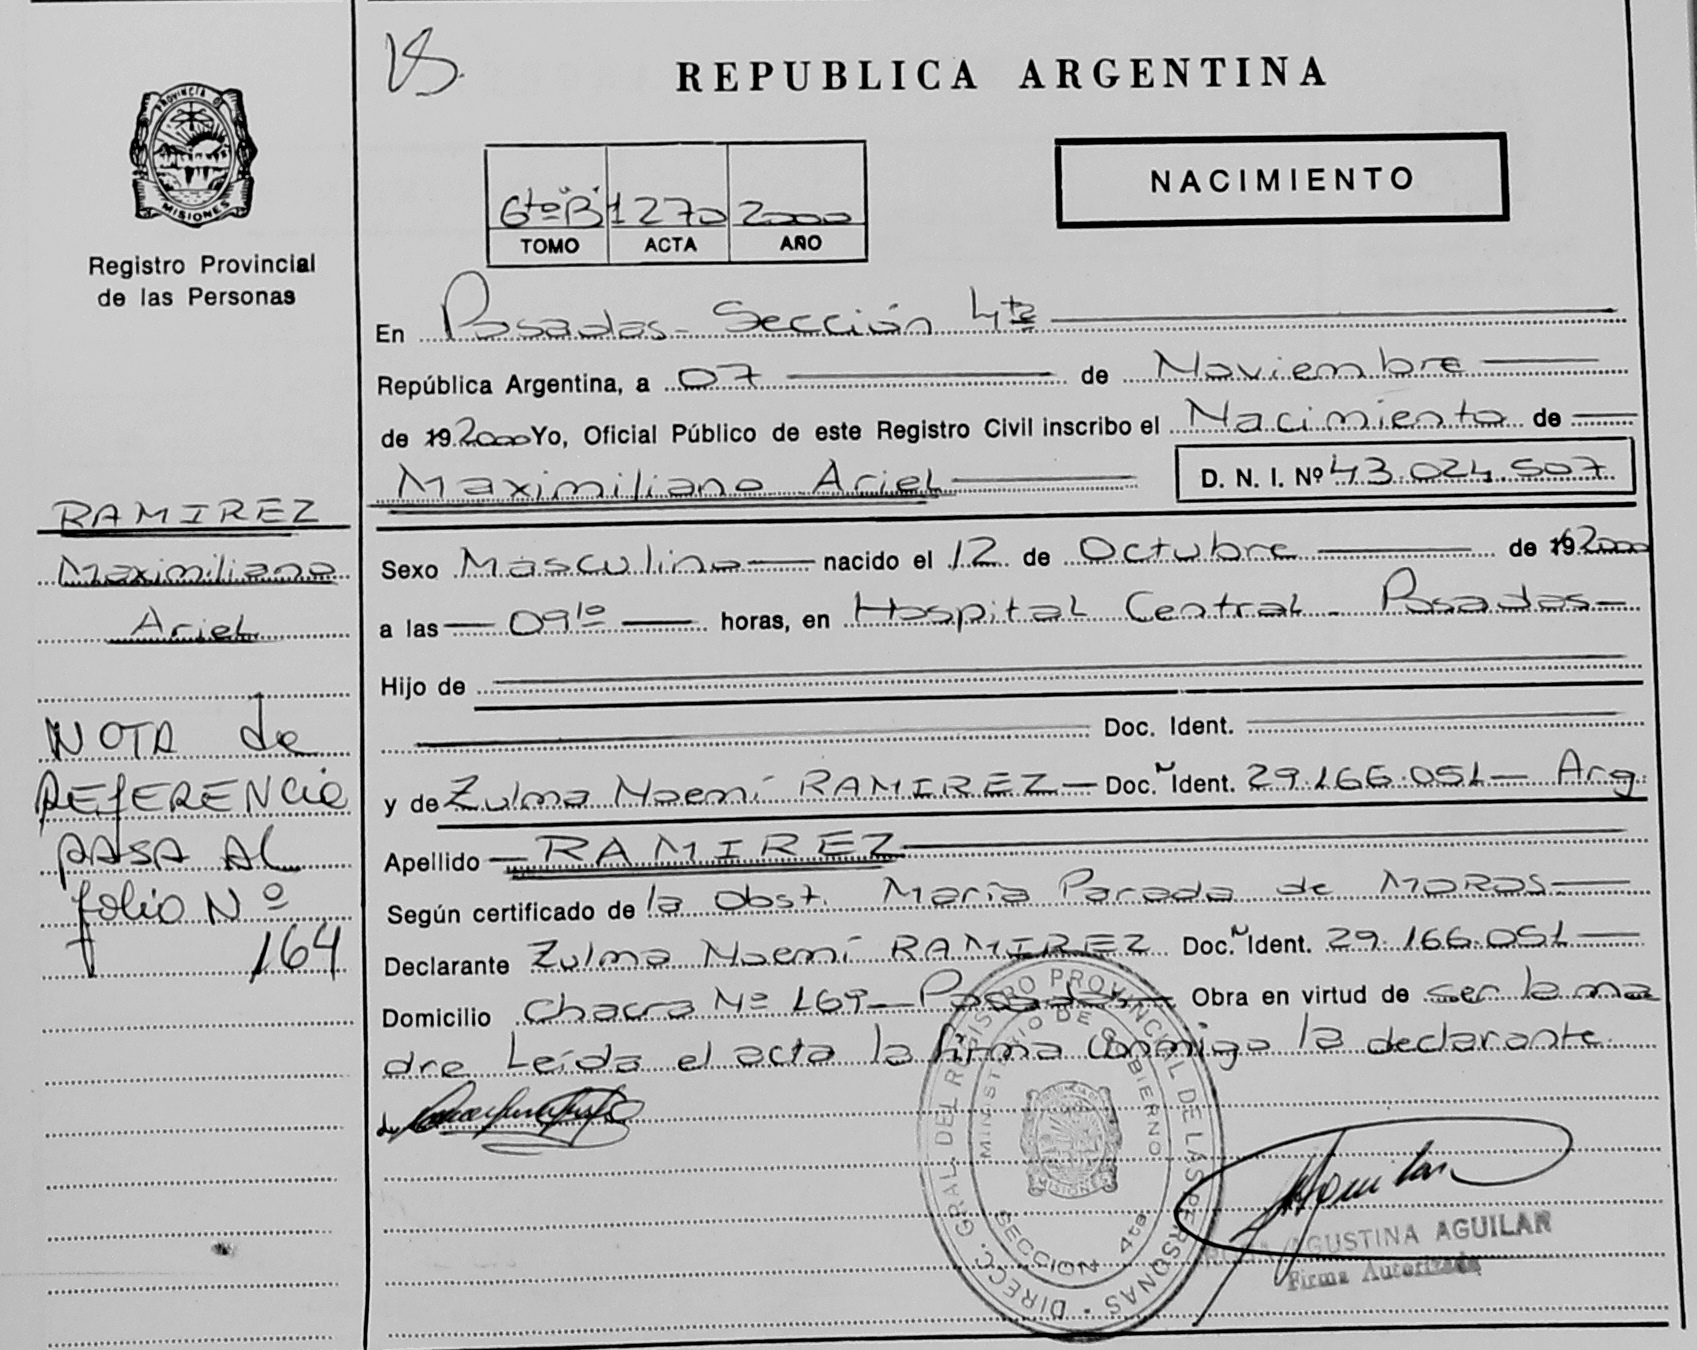 PROVINCIA DE
MISIONES
Registro Provincial
de las Personas
RAMIREZ
Maximiliano
Ariel
NOTA de
REfERENCia
PASA AL
folio Nº
164
REPUBLICA ARGENTINA
NACIMIENTO
6to "B" 1270 2000
TOMO ACTA AÑO
En Posadas - Sección 4ta
República Argentina, a 07 de Noviembre
de 19 2000 Yo, Oficial Público de este Registro Civil inscribo el Nacimiento de
Maximiliano Ariel D. N. I. Nº 43.024.507.
Sexo Masculino nacido el 12 de Octubre de 19 2000
a las 09¹⁰ horas, en Hospital Central - Posadas
Hijo de
Doc. Ident.
y de Zulma Noemí RAMIREZ Doc.N Ident. 29.166.051 Arg.
Apellido RAMIREZ
Según certificado de la Obst. María Parada de MORAS
Declarante Zulma Noemí RAMIREZ Doc.N Ident. 29.166.051
Domicilio Chacra Nº 169 Posadas Obra en virtud de ser la ma
dre Leída el acta la firma conmigo la declarante.
DIRECC. GRAL. DEL REGISTRO PROVINCIAL DE LAS PERSONAS
MINISTERIO DE GOBIERNO
MISIONES
SECCION 4ta
Aguilar
AGUSTINA AGUILAR
Firma Autorizada